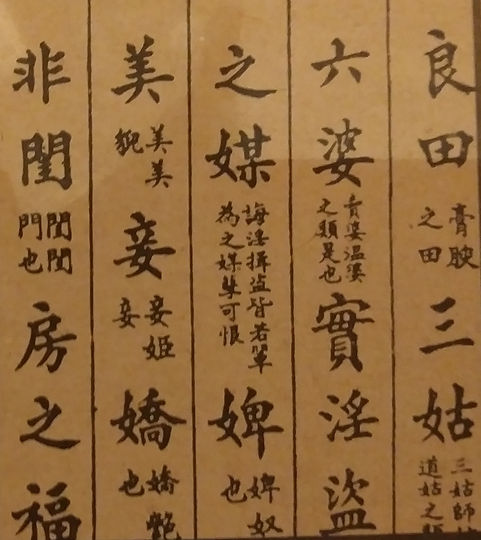 良田膏腴之田三姑三姑師道姑之
六婆婆温婆之類是也實淫盜
之媒誨淫揖盜皆若輩為之媒孽可恨婢婢奴也
美美美貌妾妾姬妾嬌嬌艷也
非閨閨閨門也房之福